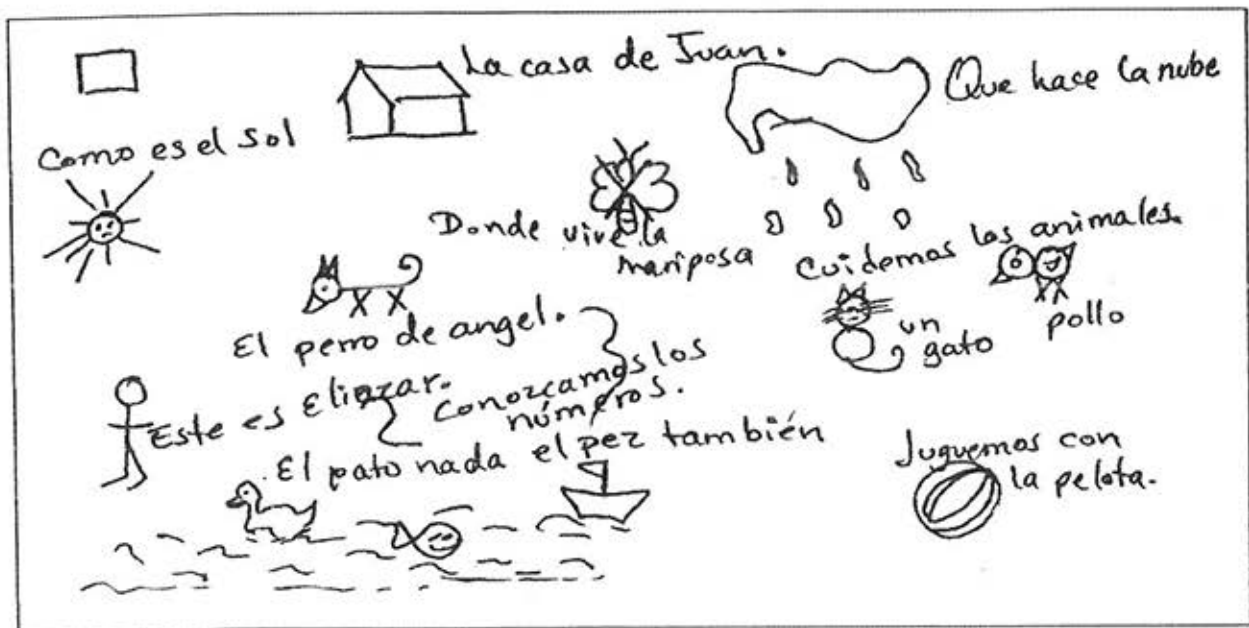 La casa de Juan.
Que hace la nube
Como es el Sol
Donde vive la
mariposa
Cuidemos los animales.
un
gato
pollo
El perro de angel.
Este es Eliazar.
Conozcamos los
números.
El pato nada el pez también
Juguemos con
la pelota.